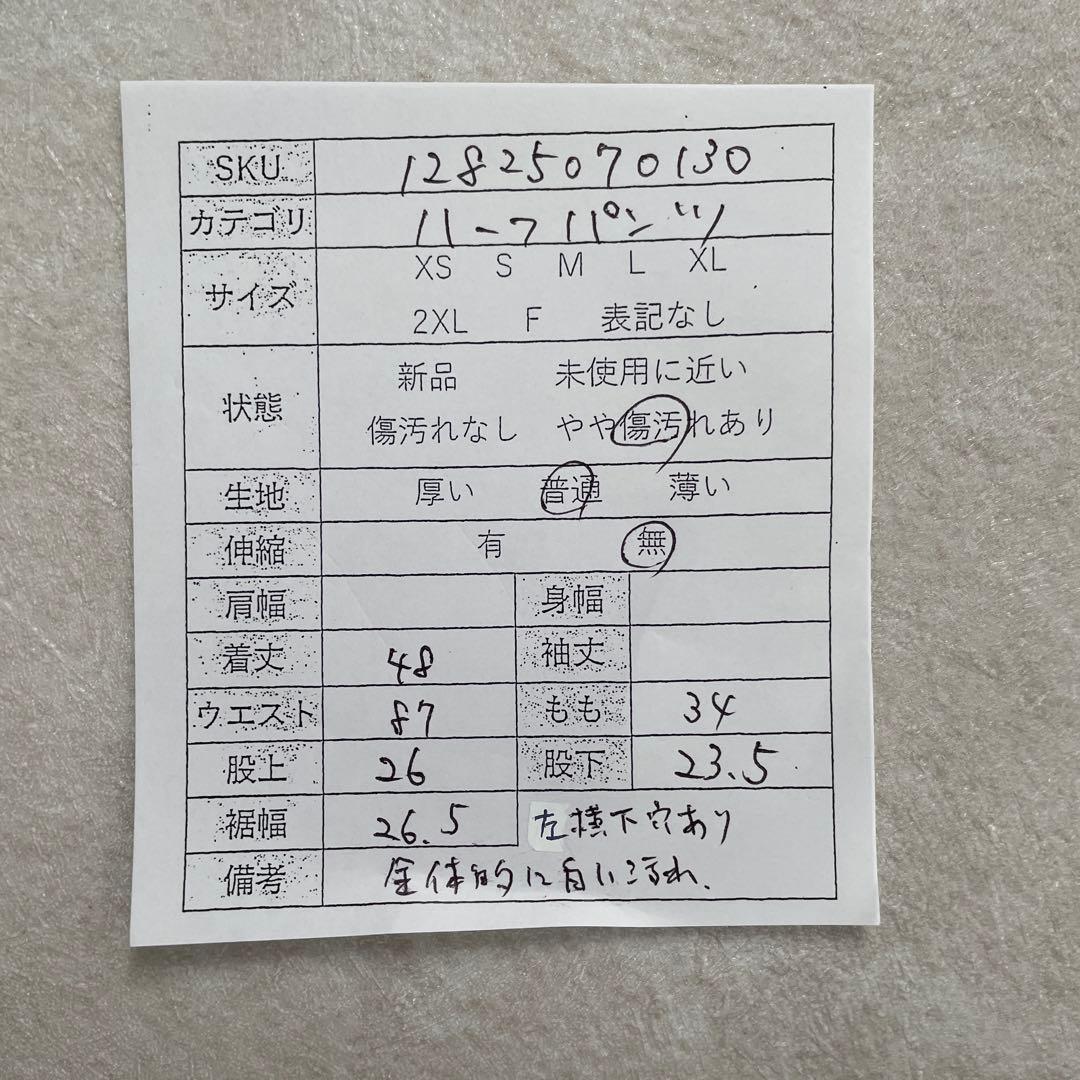 SKU 12825070130
カテゴリ ハーフパンツ
サイズ XS S M L XL
2XL F 表記なし
状態 新品 未使用に近い
傷汚れなし やや傷汚れあり
生地 厚い 普通 薄い
伸縮 有 無
肩幅 身幅
着丈 48 袖丈
ウエスト 87 もも 34
股上 26 股下 23.5
裾幅 26.5 左横下穴あり
備考 全体的に白いこすれ、